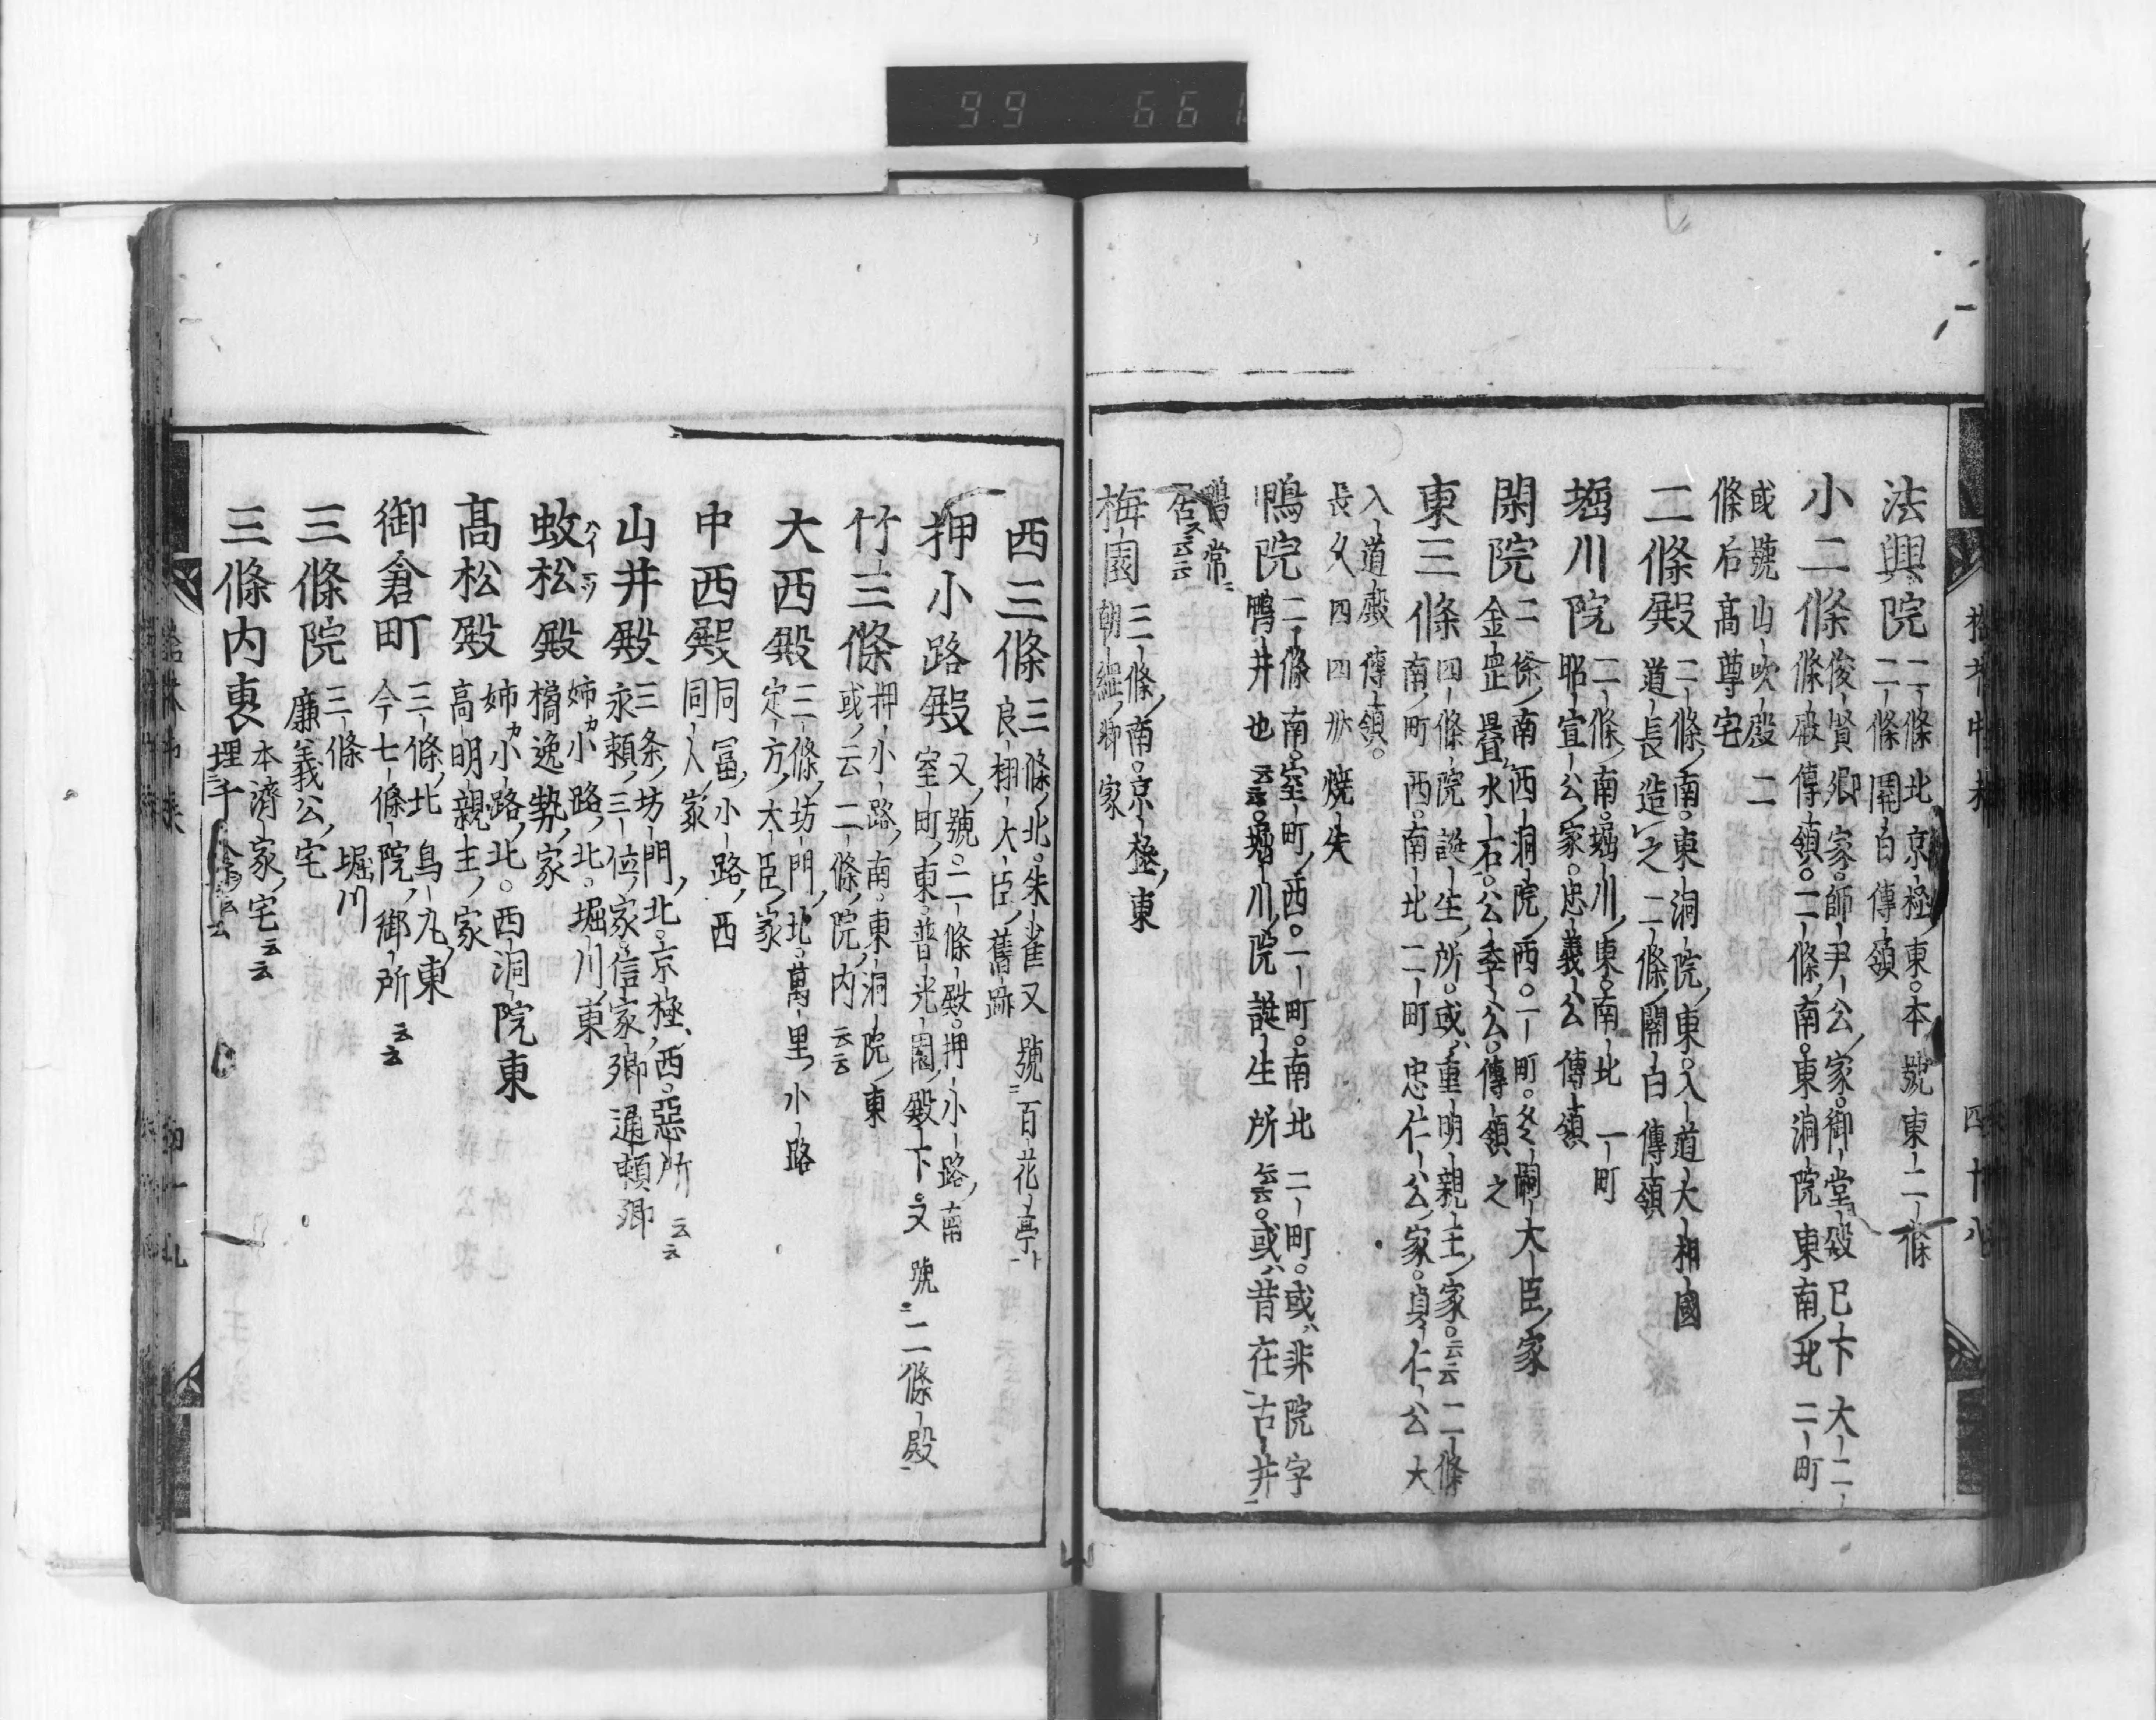 99 661
法興院 二條北京極東。本號東二條
二條關白傳領
小二條 俊賢卿家。師尹公家。御堂殿已下大二
條殿傳領。二條南。東洞院東南北二町
或號山吹殿二
條后高尊宅
二條殿 二條南。東洞院東。入道大相國
道長造之二條關白傳領
堀川院 二條南。堀川東。南北一町
昭宣公家。忠義公傳領
閑院 二條南西洞院西。一町。冬嗣大臣家
金岡疊水石。公季公傳領之
東三條 四條院誕生所。或重明親王家。云云二條
南町西。南北二町忠仁公家。貞仁公大
入道殿傳領。
長久四四卅燒失
鴨院 二條南。室町西。一町。南北二町。或非院字
鴨井也云云。堀川院誕生所云云。或昔在古井
鴨常
居云云
梅園 三條南。京極東
朝經卿家
西三條 三條北。朱雀又號百花亭
良相大臣舊跡
押小路殿 又號。二條殿。押小路南
室町東。普光園殿下。又號二條殿
竹三條 押小路南。東洞院東
或云二條院内云云
大西殿 三條坊門北。萬里小路
定方大臣家
中西殿 同冨小路西
同人家
山井殿 三条坊門北。京極西。惡所云云
永頼三位家。信家卿通頼卿
蚊松殿 姉小路北。堀川東
橘逸勢家
高松殿 姉小路北。西洞院東
高明親王家
御倉町 三條北烏丸東
今七條院御所云云
三條院 三條堀川
廉義公宅
三條内裏 本濟家宅云云